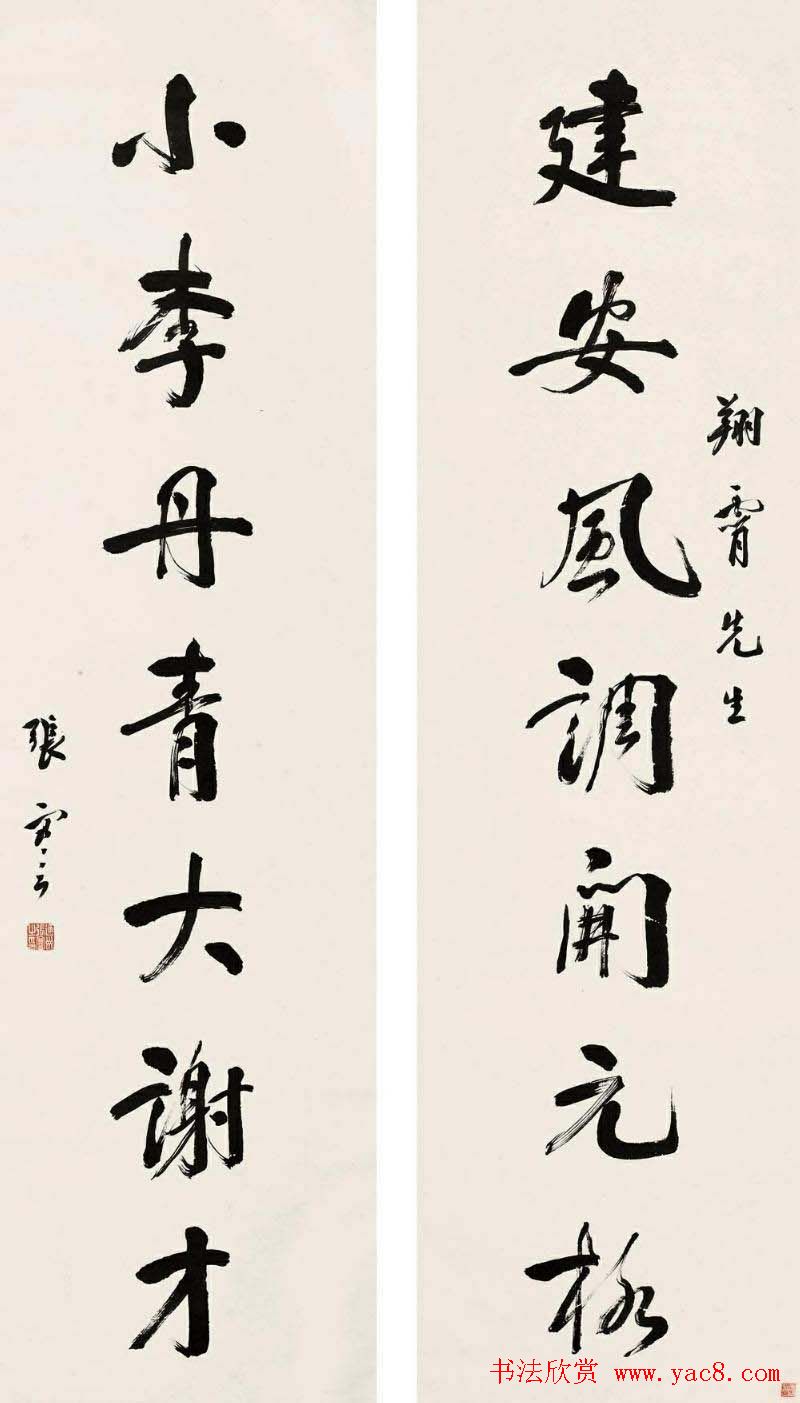 翔霄先生
建安風調開元格
小李丹青大謝才
張謇
书法欣赏 www.yac8.com